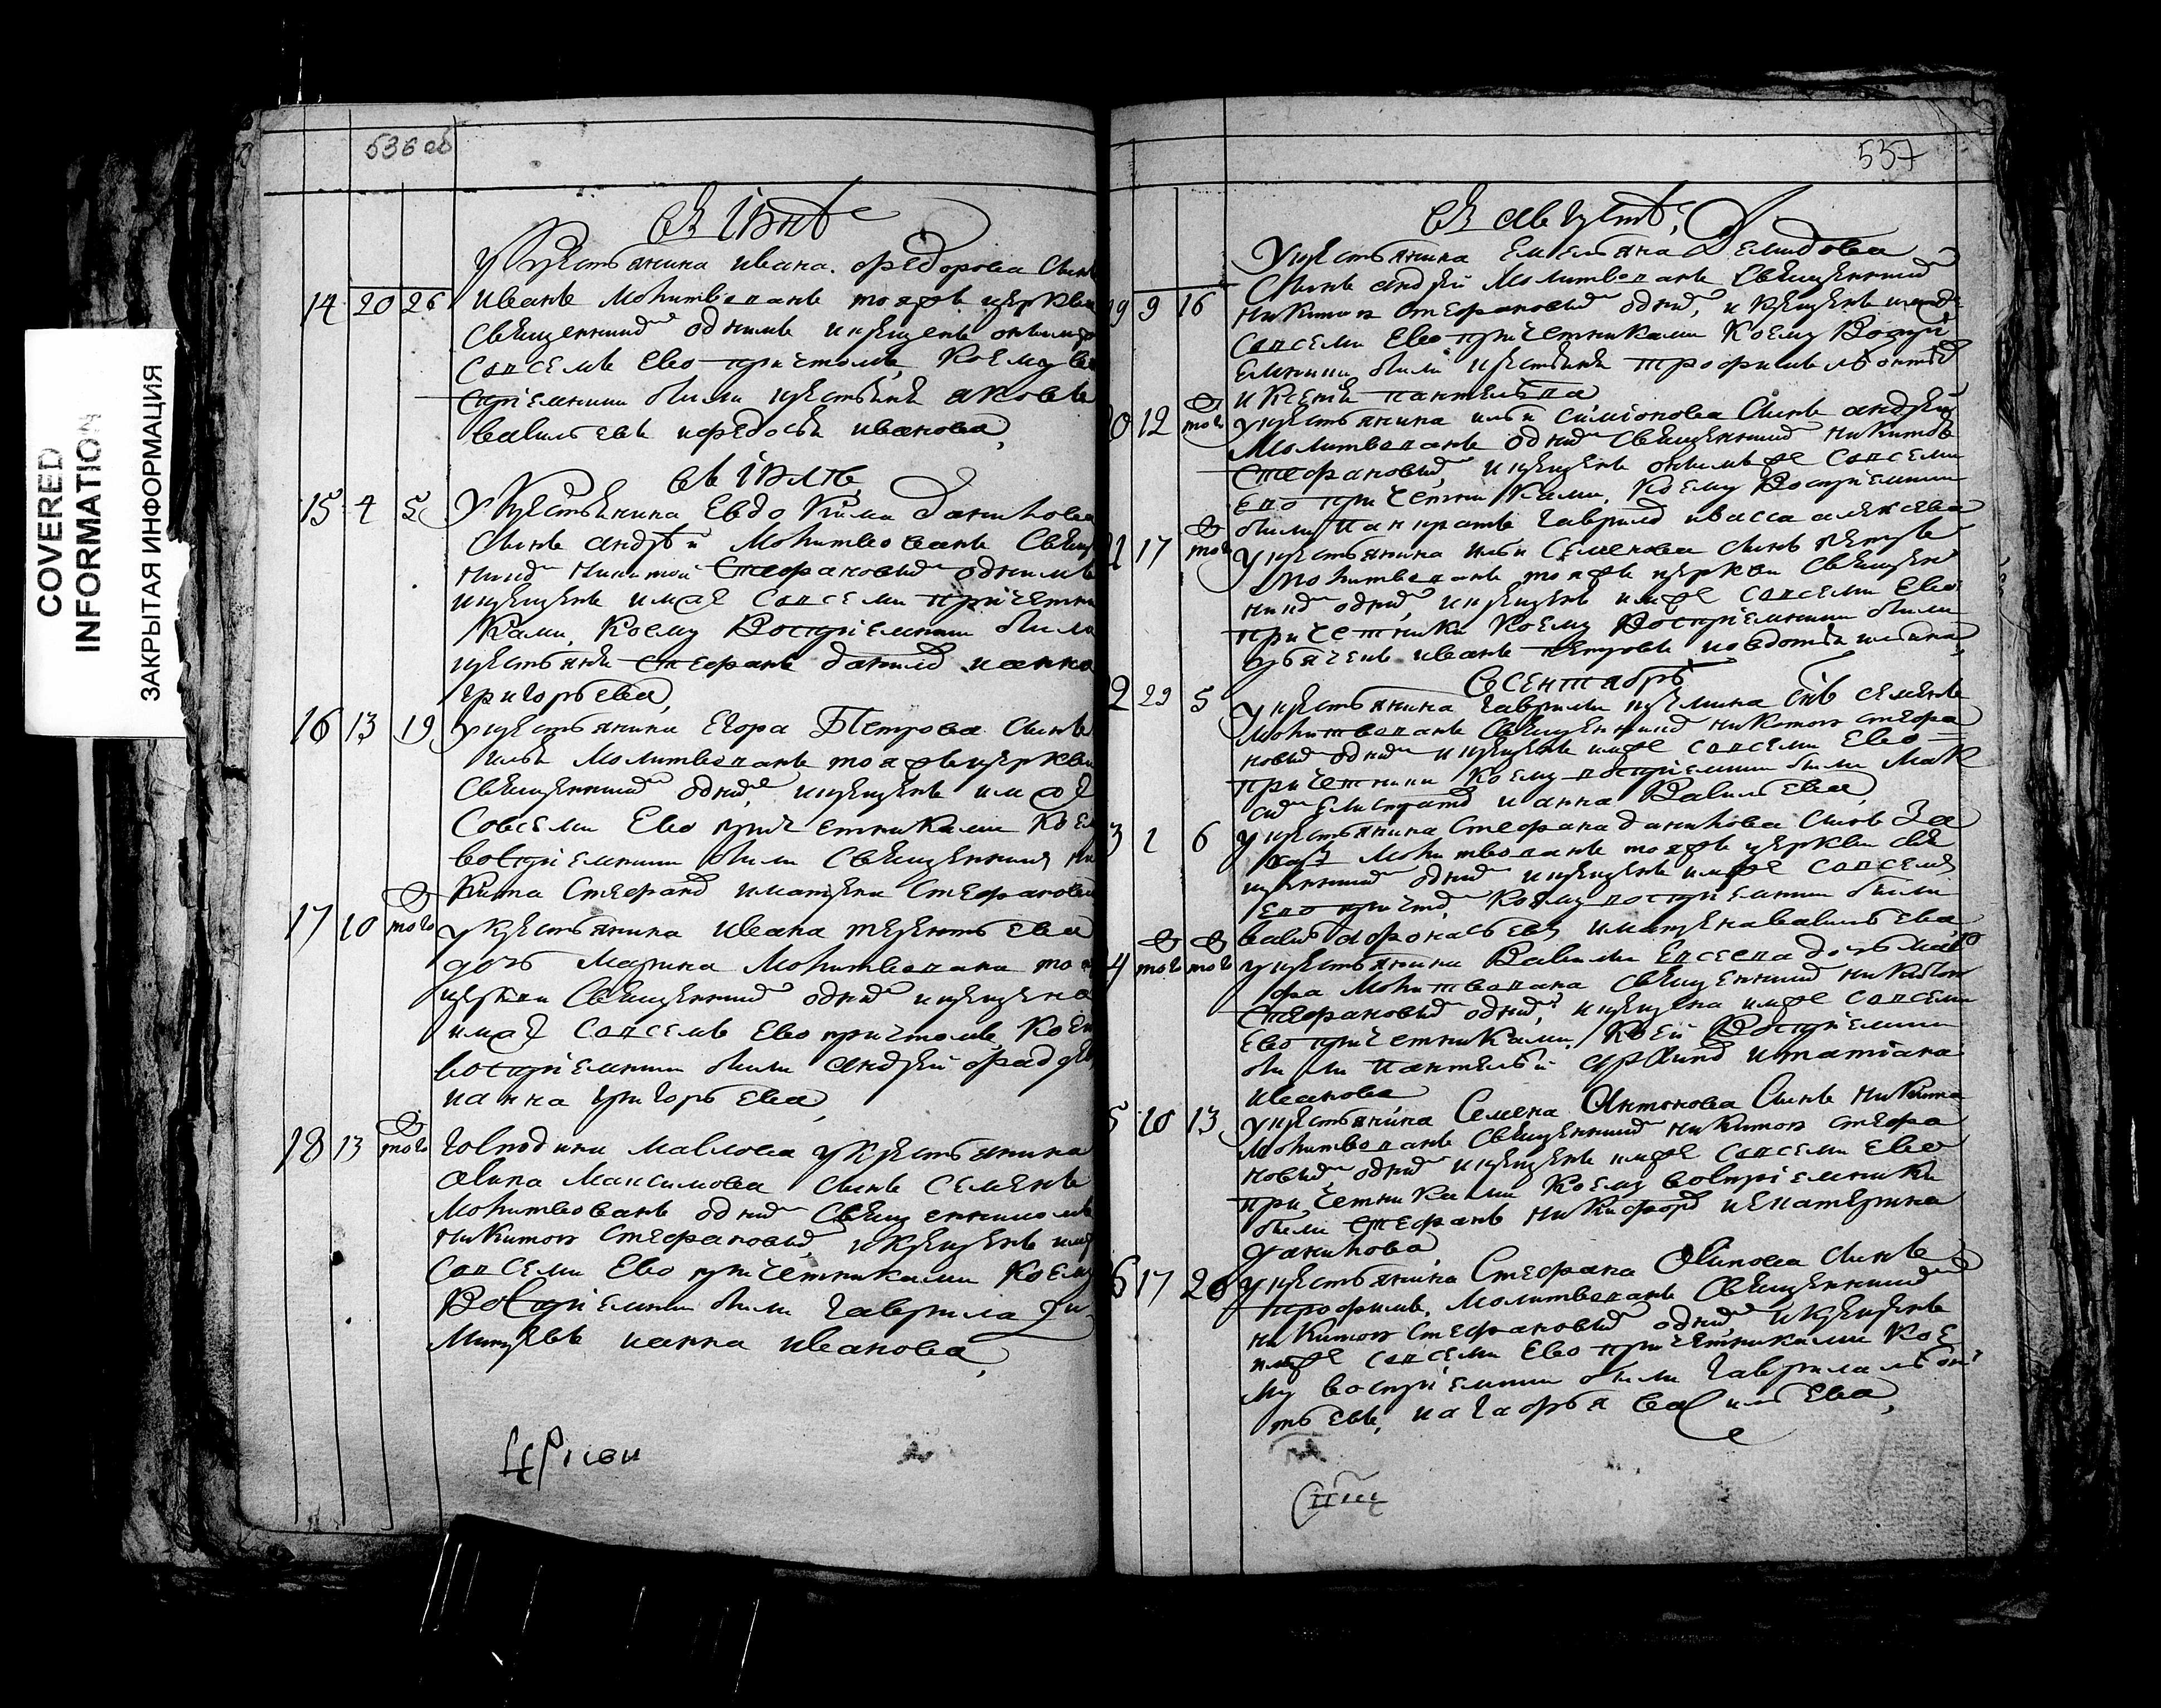 COVERED
INFORMATION
ЗАКРЫТАЯ ИНФОРМАЦИЯ
536 об
въ Iюнѣ
У крестьянина ивана федорова сынъ
14 20 26 иванъ молитвованъ тояже церкви
священникомъ однимъ и крещенъ онымже
совсемъ ево причтомъ, коему во
спрiемники были крестьяне яковъ
васильевъ ифедосья иванова,
въ iюлѣ
15 4 5 У крестьянина Евдокима данилова
сынъ андрей молитвованъ свяще
никомъ никитой стефановымъ однимъ
и крещенъ имже совсеми причетни
ками, коему воспрiемники были
крестьяне стефанъ данилов ианна
григорьева,
16 13 19 у крестьянина Егора Петрова сынъ
илья молитвованъ тояжъ церкви
священникомъ однимъ, и крещенъ имже
совсеми Ево причетниками коему
воспрiемники были священникъ ни
кита стефанов иматрена стефанова
17 10 того у крестьянина ивана терентьева
дочь марина молитвована тоя
церкви священникомъ однимъ и крещена
имже совсемъ ево причтомъ, коей
воспрiемники были андрей фадеев
ианна григорьева,
18 13 того господина маслова у крестьянина
осипа максимова сынъ семенъ
молитвованъ однимъ священникомъ
никитою стефановымъ, и крещенъ имже
совсеми Ево причетниками коему
Воспрiемники были гаврила ди
митревъ ианна иванова,
Церкви
537
въ августѣ,
У крестьянина Емельяна Демидова
сынъ андрей молитвованъ священникомъ
19 9 16 никитою стефановымъ однимъ, и крещенъ имже
совсеми Ево причетниками коему Воспрi
емники были крестьяне трофимъ леонтьев
и ксенья пантельева
20 12 того у крестьянина ильи симiонова сынъ андрей
молитвованъ однимъ священникомъ никитою
стефановымъ, и крещенъ онымже совсеми
Ево причетниками, коему Воспрiемники
были панкратъ гаврилов ивасса алексева
21 17 того у крестьянина ильи семенова сынъ петръ
молитвованъ тояже церкви священ
никомъ однимъ, и крещенъ имже совсеми Ево
причетники коему Воспрiемники были
иванъ петровъ иовдотья
Всентябрѣ
22 29 5 у крестьянина гаврилы сынъ семенъ
молитвованъ священникомъ никитою стефа
новымъ однимъ и крещенъ имже совсеми Ево
причетники коему воспрiемники были мак
сим Елистратов и анна Васильева,
23 1 6 у крестьянина стефана данилова сынъ За
харъ молитвованъ тояже церкви свя
щенникомъ однимъ и крещенъ имже совсемъ
Ево причтомъ, коему воспрiемники были
василей афонасьевъ иматрена васильева,
24 того того у крестьянина Василья Евсеева дочь мав
фа молитвована священникомъ никитою
стефановымъ однимъ, и крещена имже совсеми
Ево причетниками, коей Воспрiемники
были пантелей архипов итатiана
иванова
25 10 13 у крестьянина Семена Антонова сынъ никита
молитвованъ священникомъ никитою стефа
новымъ, однимъ и крещенъ имже совсеми Ево
причетниками коему воспрiемники
были стефанъ никифоров иекатерина
данилова
26 17 20 у крестьянина Стефана Осипова сынъ
трофимъ, молитвованъ священникомъ
никитою стефановымъ однимъ, и крещенъ
имже совсеми Ево причетниками кое
му воспрiемники были гаврила леон
тьевъ, иагафья васильева,